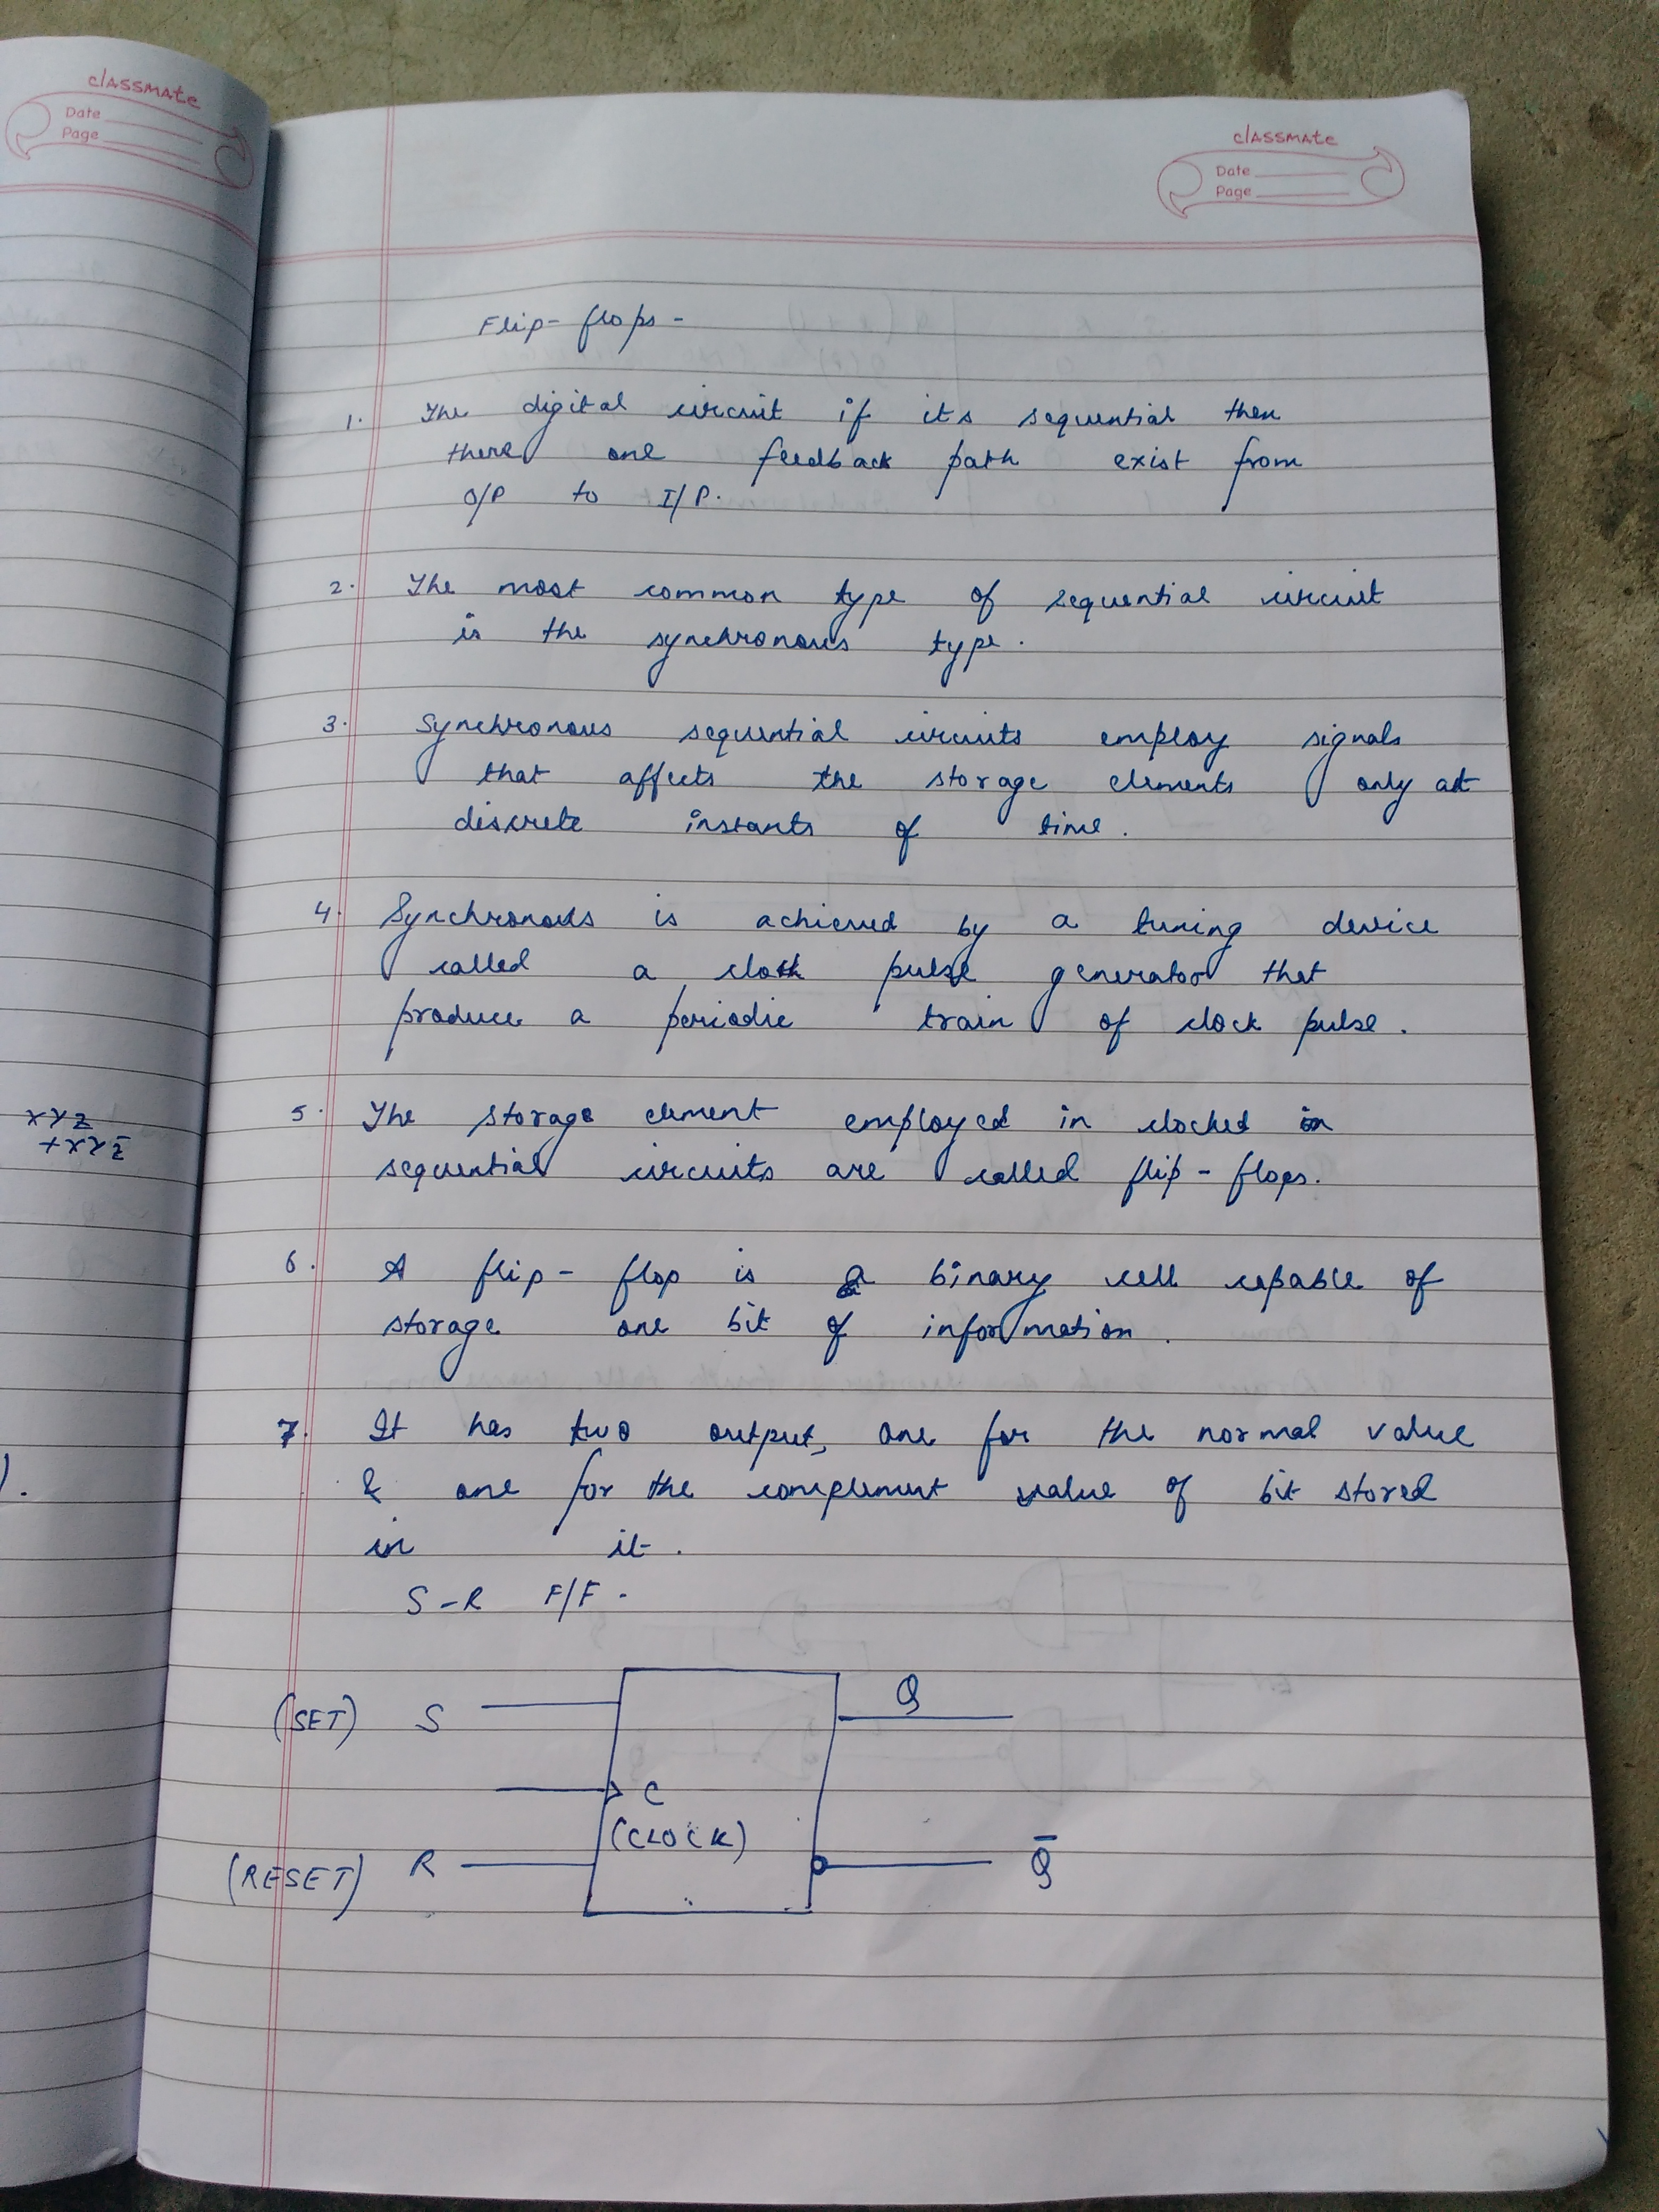 classmate
Date
Page
classmate
Date
Page
xyz
+xyz̄
).
Flip-flops -
1. The digital circuit if its sequential then
there one feedback path exist from
O/P to I/P.
2. The most common type of sequential circuit
is the synchronous type.
3. Synchronous sequential circuits employ signals
that affects the storage elements only at
discrete instants of time.
4. Synchronous is achieved by a tuning device
called a clock pulse generator that
produce a periodic train of clock pulse.
5. The storage element employed in clocked
sequential circuits are called flip-flops.
6. A flip-flop is a binary cell capable of
storage one bit of information.
7. It has two output, one for the normal value
& one for the complement value of bit stored
in it.
S-R F/F -
(SET) S Q
C
(CLOCK)
(RESET) R Q̄